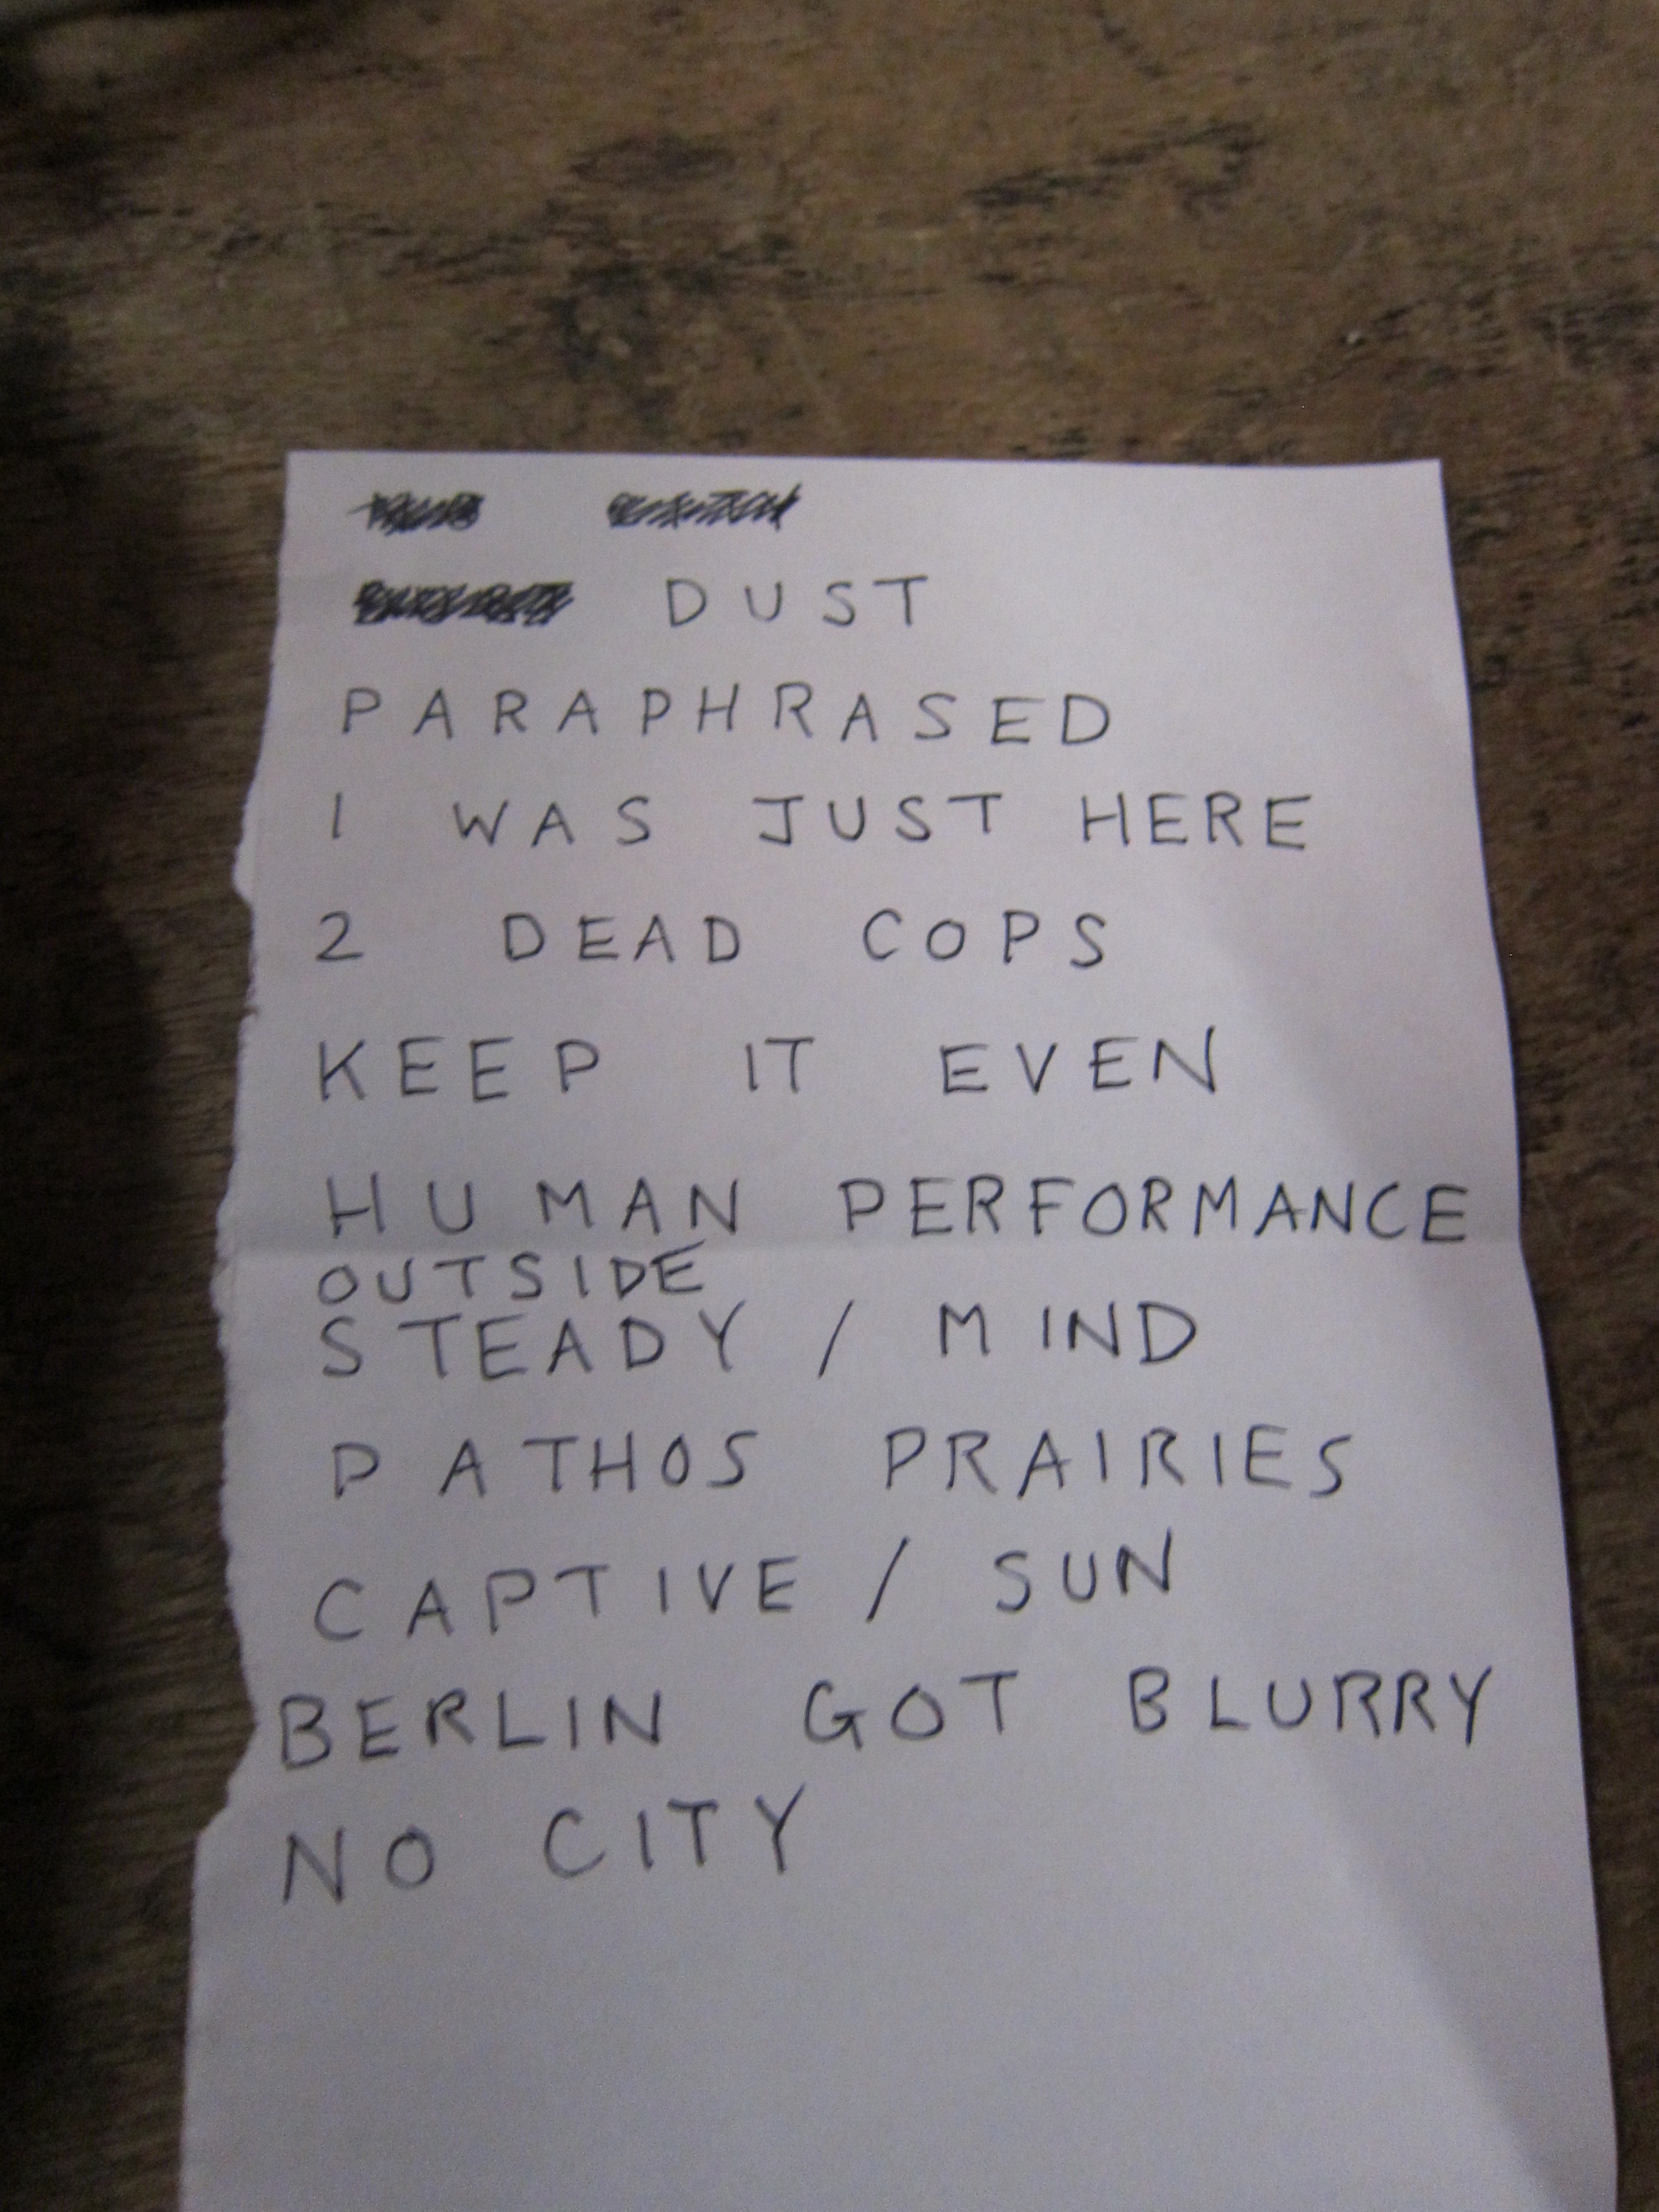 DUST
PARAPHRASED
I WAS JUST HERE
2 DEAD COPS
KEEP IT EVEN
HUMAN PERFORMANCE
OUTSIDE
STEADY / MIND
PATHOS PRAIRIES
CAPTIVE / SUN
BERLIN GOT BLURRY
NO CITY